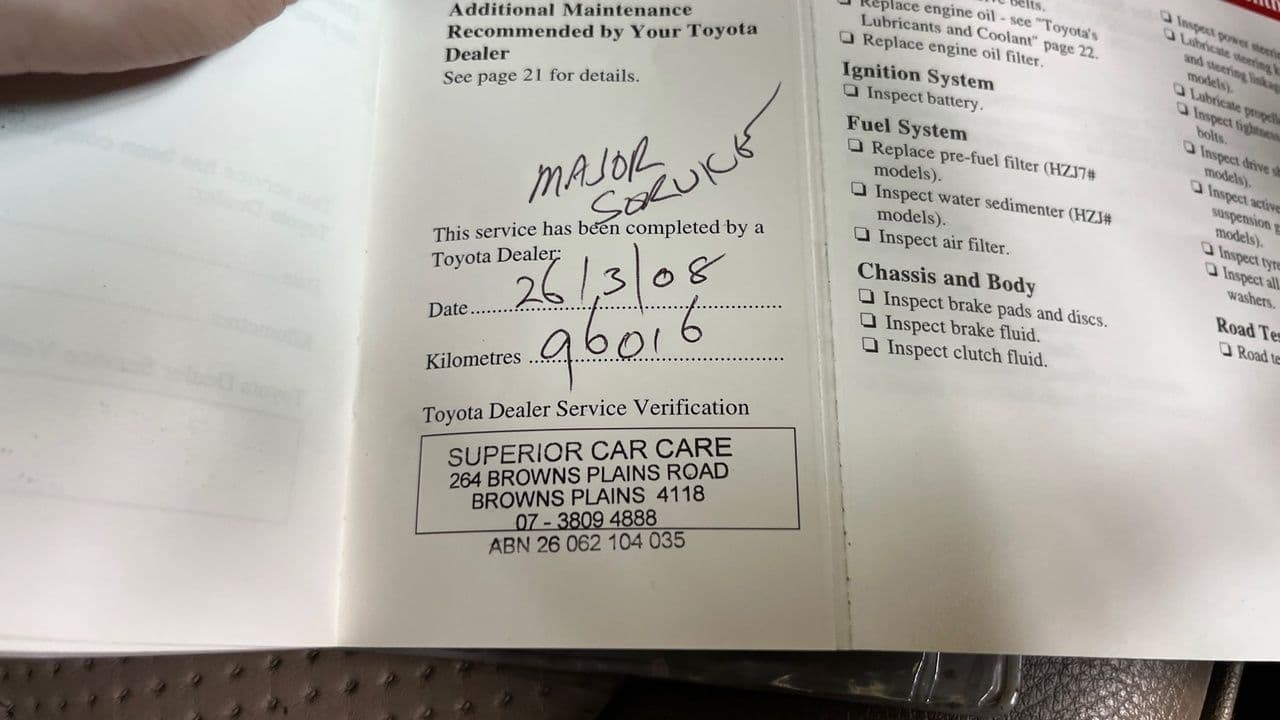 Additional Maintenance
Recommended by Your Toyota
Dealer
See page 21 for details.
MAJOR
SERVICE
This service has been completed by a
Toyota Dealer:
Date 26/3/08
Kilometres 96016
Toyota Dealer Service Verification
SUPERIOR CAR CARE
264 BROWNS PLAINS ROAD
BROWNS PLAINS 4118
07 - 3809 4888
ABN 26 062 104 035
belts.
Replace engine oil - see "Toyota's
Lubricants and Coolant" page 22.
❑ Replace engine oil filter.
Ignition System
❑ Inspect battery.
Fuel System
❑ Replace pre-fuel filter (HZJ7#
models).
❑ Inspect water sedimenter (HZJ#
models).
❑ Inspect air filter.
Chassis and Body
❑ Inspect brake pads and discs.
❑ Inspect brake fluid.
❑ Inspect clutch fluid.
❑ Inspect power
❑ Lubricate steering
and steering
models).
❑ Lubricate
❑ Inspect
bolts.
❑ Inspect drive
models).
❑ Inspect
suspension
models).
❑ Inspect
❑ Inspect all
washers.
Road
❑ Road